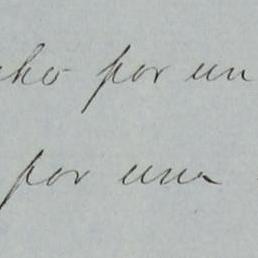 cho por un
por una